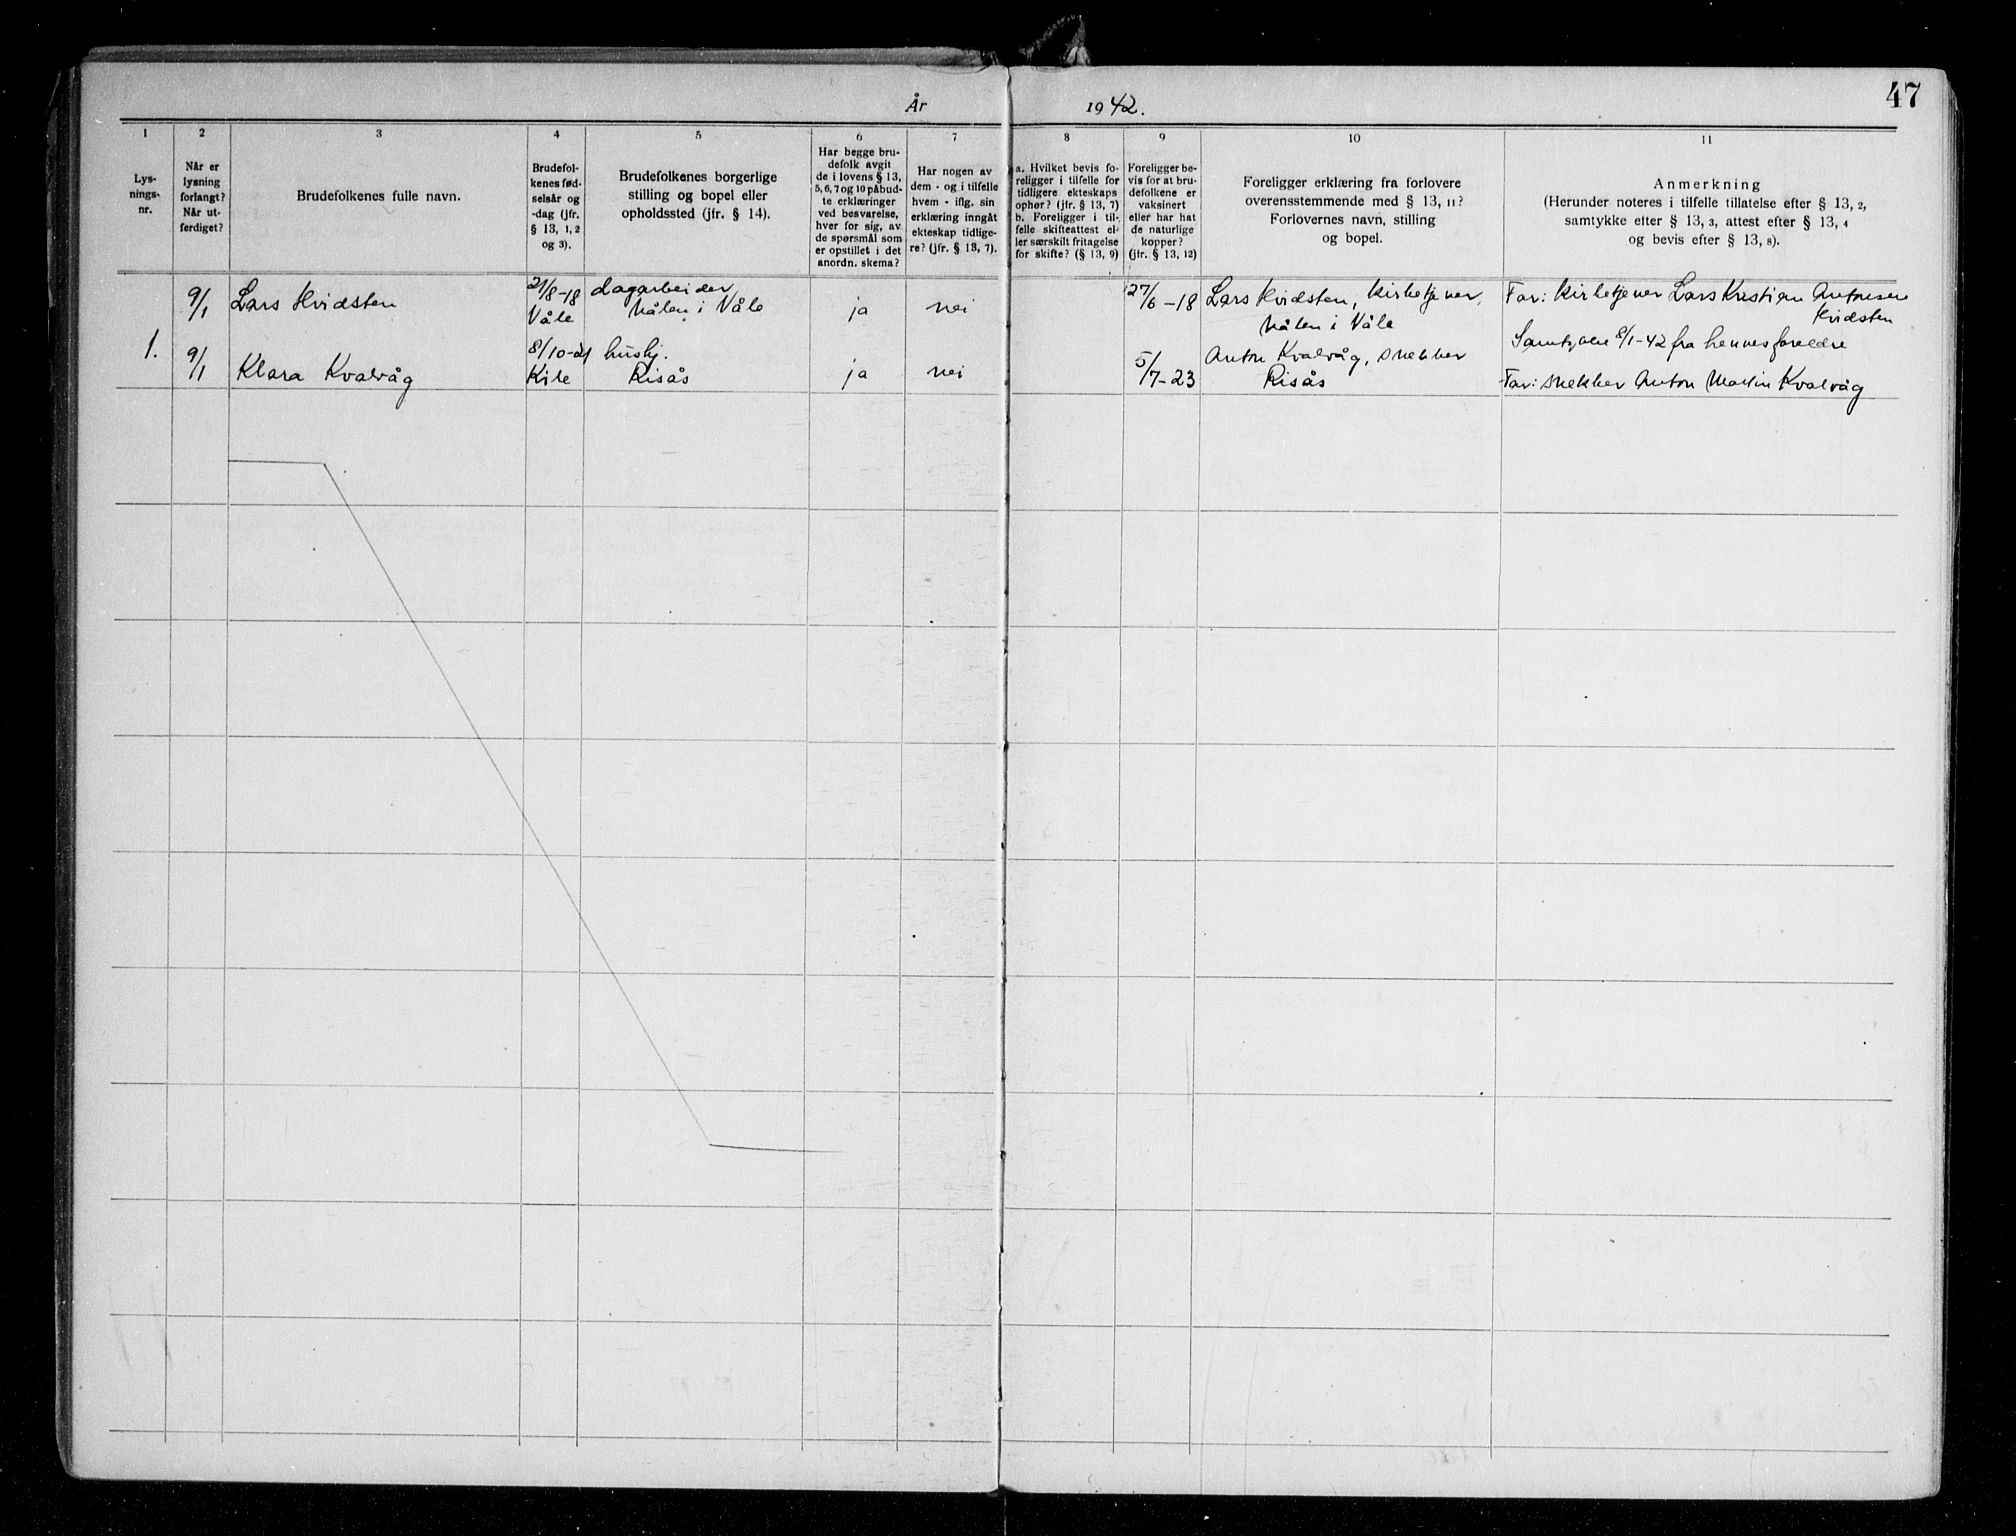 47
År 1942.
1
2
3
4
5
6
7
8
9
10
11
Lys-
nings-
nr.
Når er
lysning
forlangt?
Når ut-
ferdiget?
Brudefolkenes fulle navn.
Brudefol-
kenes fød-
selsår og
-dag (jfr.
§ 13, 1, 2
og 3).
Brudefolkenes borgerlige
stilling og bopel eller
opholdssted (jfr. § 14).
Har begge bru-
defolk avgit
de i lovens § 13,
5, 6, 7 og 10 påbud-
te erklæringer
ved besvarelse,
hver for sig, av
de spørsmål som
er opstillet i det
anordn. skema?
Har nogen av
dem - og i tilfelle
hvem - iflg. sin
erklæring inngåt
ekteskap tidlige-
re? (jfr. § 13, 7).
a. Hvilket bevis fo-
religger i tilfelle for
tidligere ekteskaps
ophør? (jfr. § 13, 7)
b. Foreligger i til-
felle skifteattest el-
ler særskilt fritagelse
for skifte? (§ 13, 9)
Foreligger be-
vis for at bru-
defolkene er
vaksinert
eller har hat
de naturlige
kopper?
(jfr. § 13, 12)
Foreligger erklæring fra forlovere
overensstemmende med § 13, 11?
Forlovernes navn, stilling
og bopel.
Anmerkning
(Herunder noteres i tilfelle tillatelse efter § 13, 2,
samtykke efter § 13, 3, attest efter § 13, 4
og bevis efter § 13, 8).
1.
9/1
Lars Hvidsten
21/8-18
Våle
dagarbeider,
i Våle
ja
nei
27/6-18
Lars Hvidsten, kirketjener,
i Våle
Far: kirketjener Lars Kristian Antonsen
Hvidsten
9/1
Klara Kvalvåg
8/10-21
Kile
hushj.
Risås
ja
nei
5/7-23
Anton Kvalvåg, snekker
Risås
Samtykke 8/1-42 fra hennes foreldre
Far: snekker Anton Martin Kvalvåg